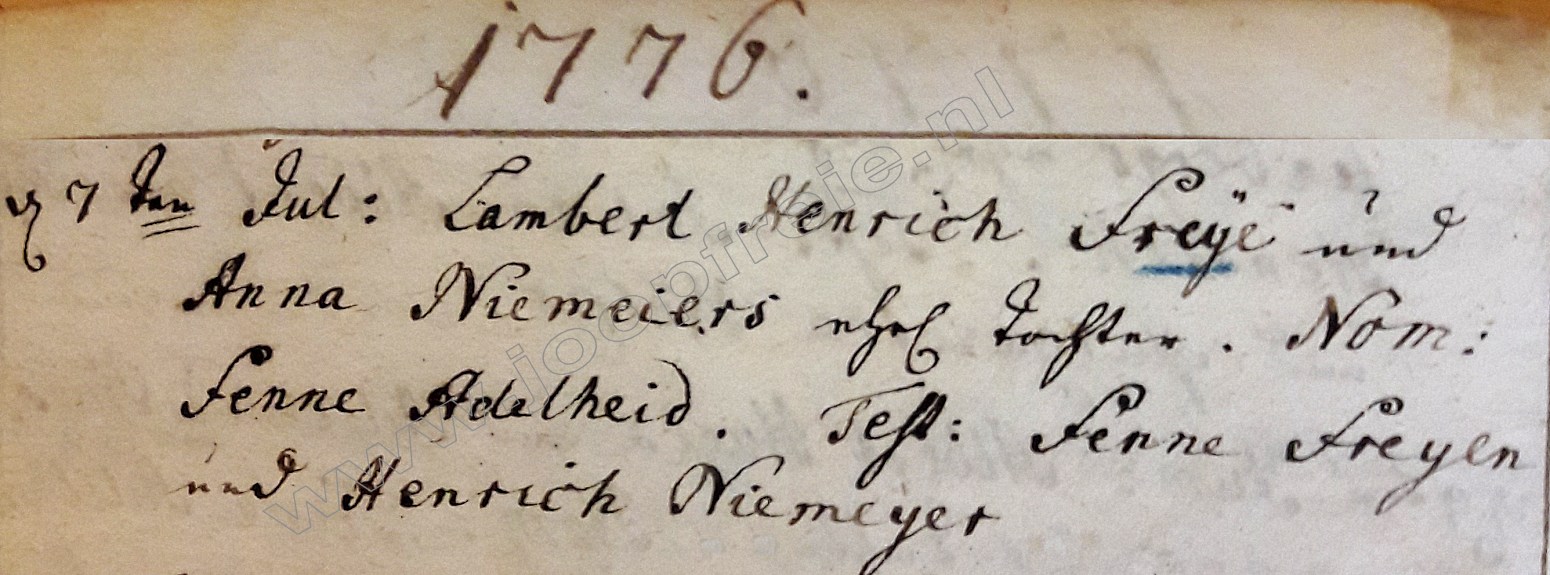 1776.
d 7 ten Jul: Lambert Henrich Freÿe und
Anna Niemeiers ehel Tochter. Nom:
Fenne Adelheid. Test: Fenne Freyen
und Henrich Niemeyer
www.joopfreie.nl